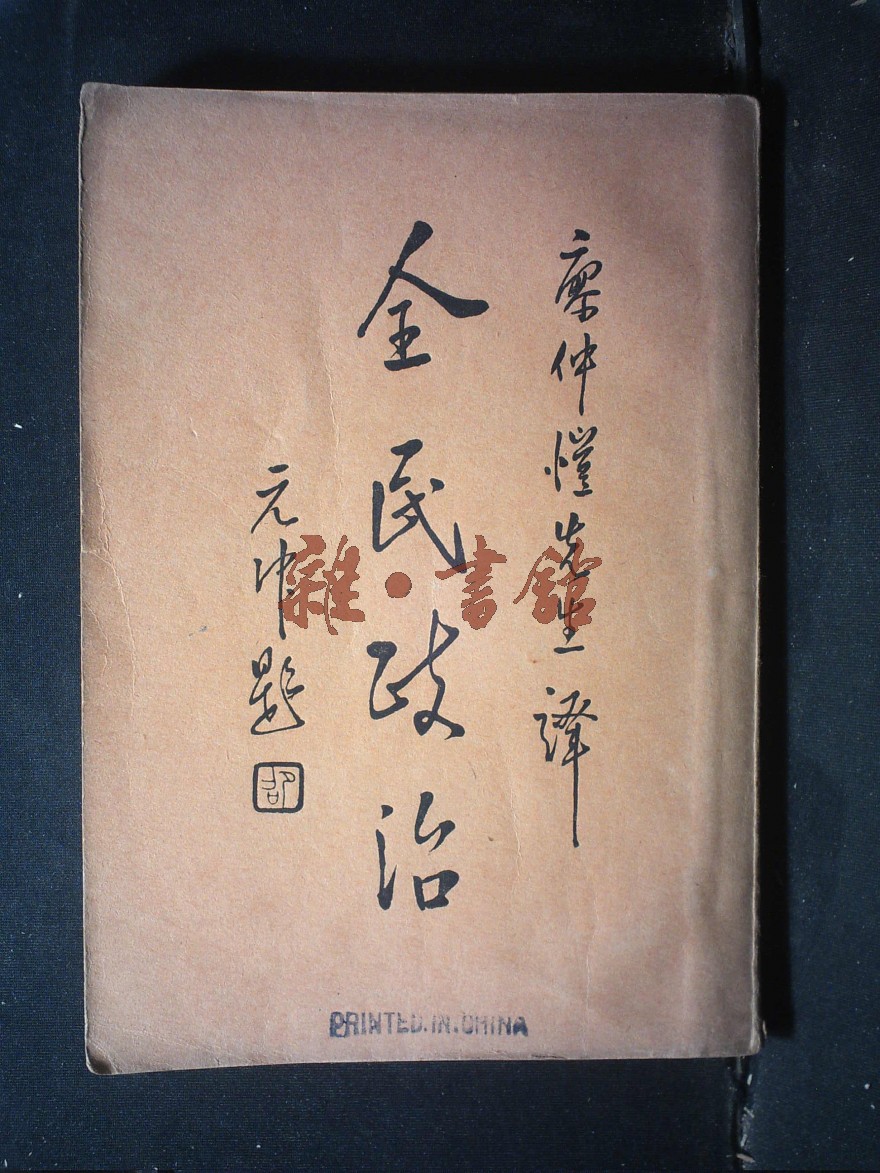 廖仲愷先生譯
全民政治
元冲題
邵
雜·書館
PRINTED.IN.CHINA